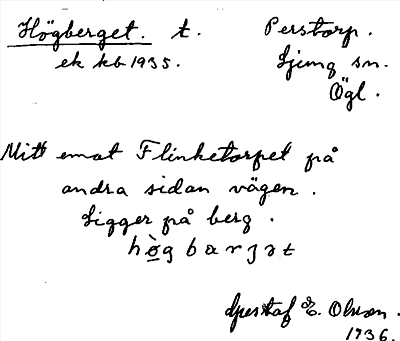 Högberget. t. Perstorp.
ek kb 1935. Ljung sn.
Ögl.
Mitt emot Flinketorpet på
andra sidan vägen.
Ligger på berg.
Gustaf E. Olsson.
1936.